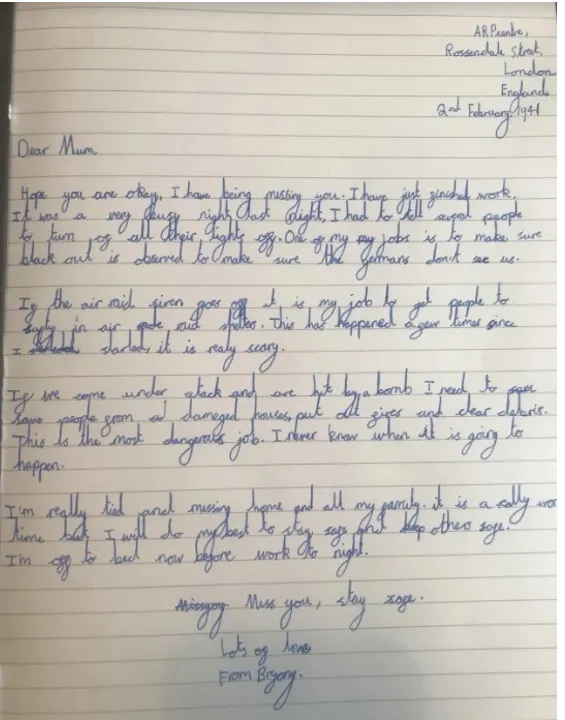 ARP centre,
Rossendale Street,
London
England.
2nd February 1941
Dear Mum
Hope you are okay, I have being missing you. I have just finished work.
It was a very busy night last night, I had to tell people
to turn of all their lights off. One of my jobs is to make sure
black out is obsurred to make sure the germans don't see us.
If the air raid siren goes off it is my job to get people to
safty in air raid shelters. This has happened a few times since
I started, it is realy scary.
If we come under atack and are hit by a bomb I need to
save people from damaged houses, put out fires and clear debris.
This is the most dangerous job. I never know when it is going to
happen.
I'm really tied and missing home and all my family. it is a really
time but I will do my best to stay safe and keep others safe.
I'm off to bed now before work to night.
Miss you, stay safe.
Lots of love
From Bryony.